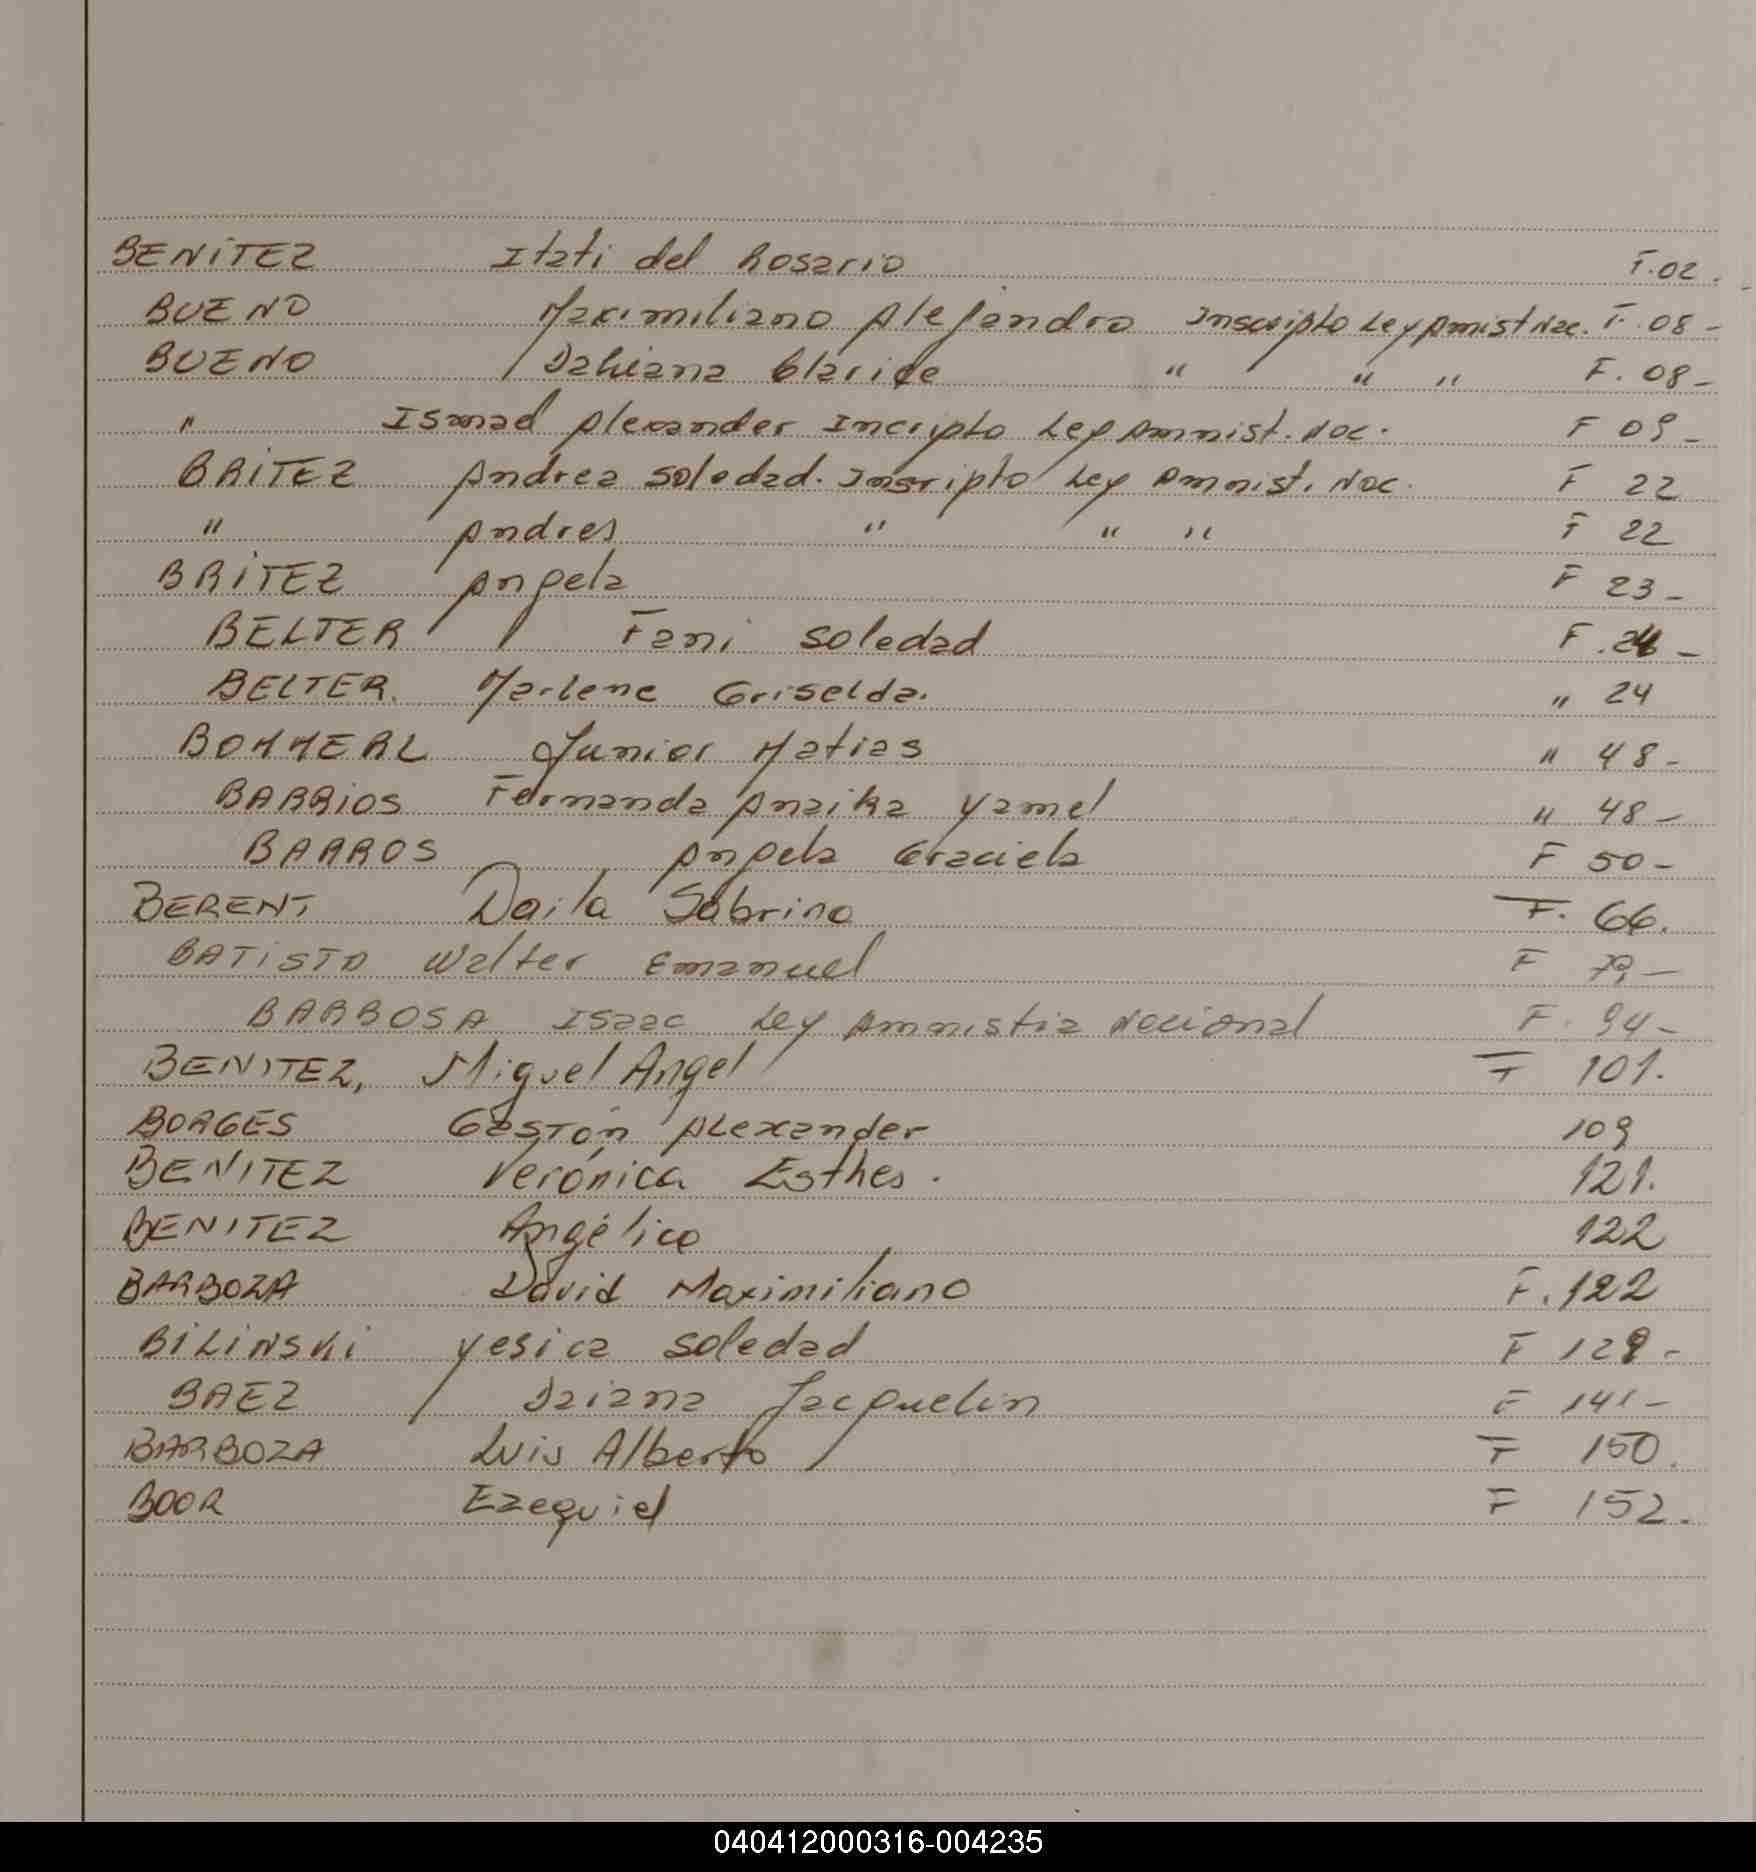 BENITEZ Itati del Rosario F.02.
BUENO Maximiliano Alejandro Inscripto Ley Amist Nac. F. 08-
BUENO Dahiana Clarice " " " F. 08-
" Ismad Alexander Incripto Ley Amnist. Nac. F 09-
BRITEZ Andrea Soledad. Inscripto Ley Amnist. Nac. F 22
" Andres " " " F 22
BRITEZ Angela F 23-
BELTER Fani Soledad F. -
BELTER. Marlene Griselda. " 24
BOMMERL Junior Matias " 48-
BARRIOS Fernanda Anaika Yamel " 48-
BARROS Angela Graciela F 50-
BERENT Daila Sabrina F. 66.
BATISTA Walter Emanuel F -
BARBOSA Isaac Ley Amnistia Nacional F. 94-
BENITEZ, Miguel Angel F 101.
BORGES Gastón Alexander 109
BENITEZ Verónica Esther. 121.
BENITEZ Angélica 122
BARBOZA David Maximiliano F. 122
BILINSKI Yesica Soledad F -
BAEZ Daiana Jacquelin F 141-
BARBOZA Luis Alberto F 150.
BOOR Ezequiel F 152.
040412000316-004235